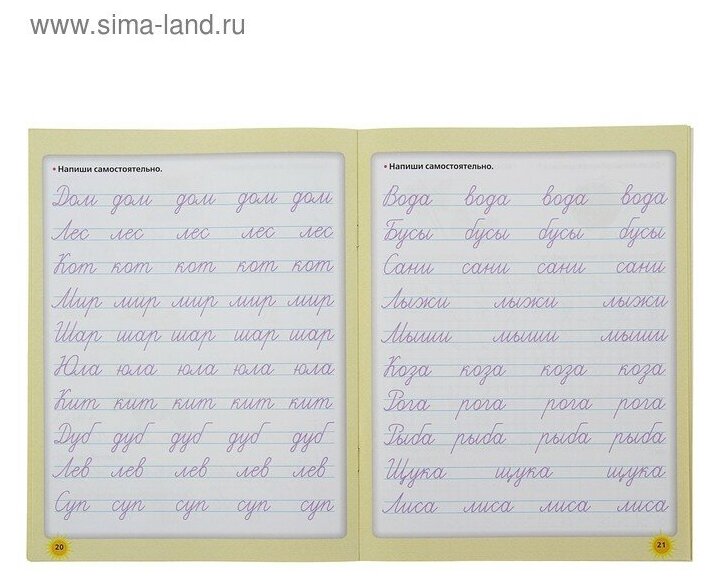 www.sima-land.ru
• Напиши самостоятельно.
Дом дом дом дом дом
Лес лес лес лес лес
Кот кот кот кот кот
Мир мир мир мир мир
Шар шар шар шар шар
Юла юла юла юла юла
Кит кит кит кит кит
Дуб дуб дуб дуб дуб
Лев лев лев лев лев
Суп суп суп суп суп
20
• Напиши самостоятельно.
Вода вода вода вода
Бусы бусы бусы бусы
Сани сани сани сани
Лыжи лыжи лыжи
Мыши мыши мыши
Коза коза коза коза
Рога рога рога рога
Рыба рыба рыба рыба
Щука щука щука
Лиса лиса лиса лиса
21